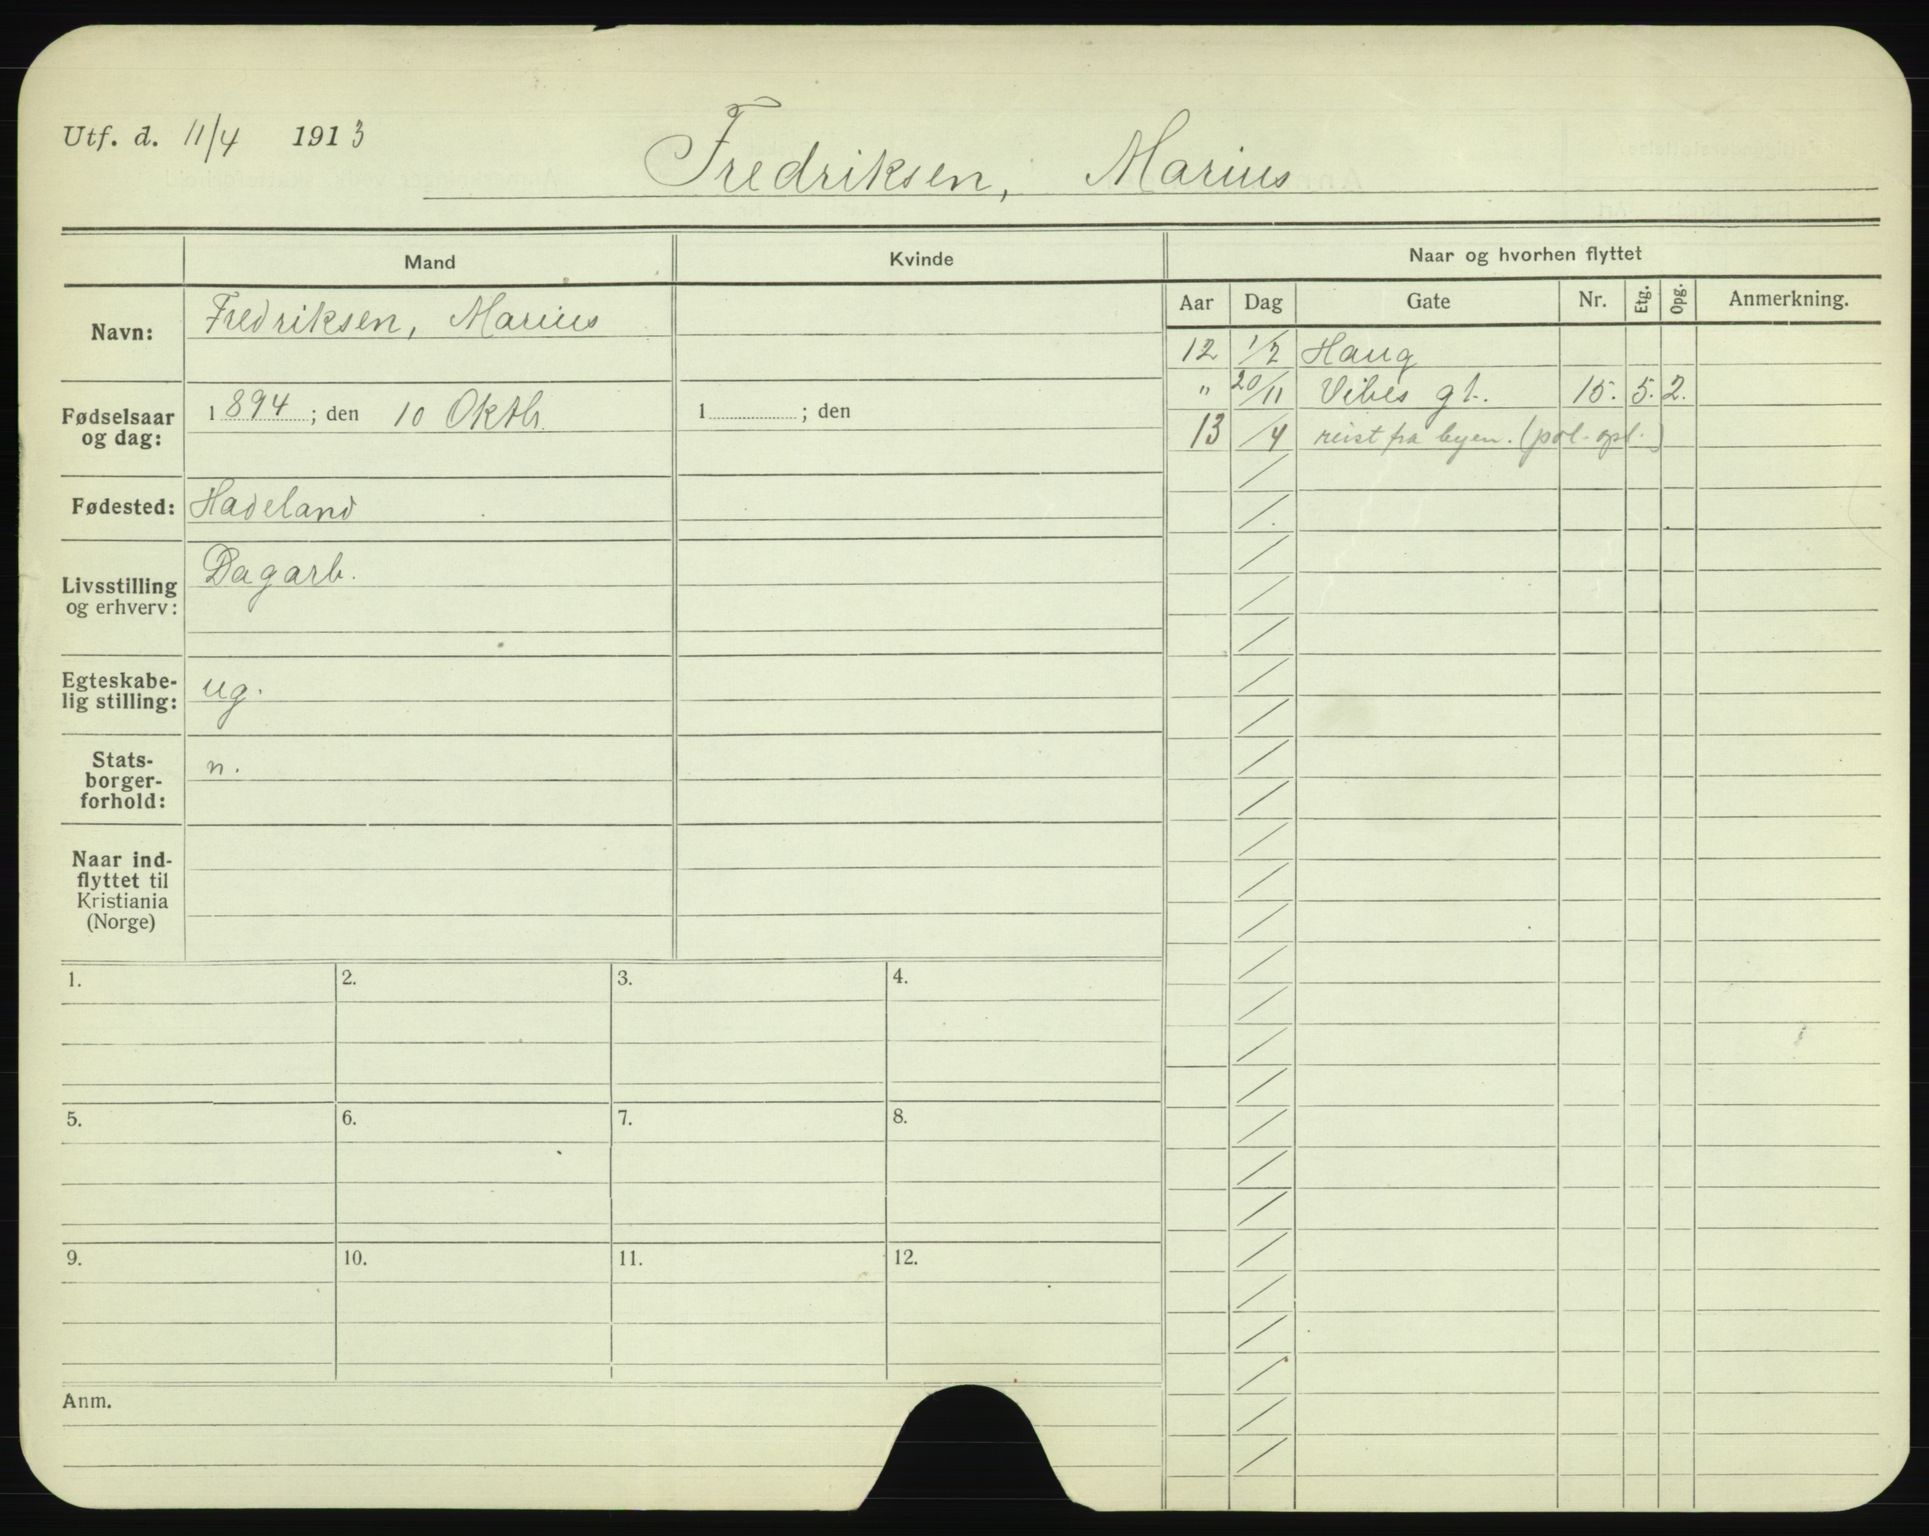 Utf. d. 11/4 1913
Fredriksen, Marius
Mand
Kvinde
Naar og hvorhen flyttet
Navn:
Fredriksen, Marius
Fødselsaar og dag:
1894; den 10 Oktbr.
1 ; den
Fødested:
Hadeland
Livsstilling og erhverv:
Dagarb.
Egteskabe-
lig stilling:
ug.
Stats-
borger-
forhold:
n.
Naar ind-
flyttet til
Kristiania
(Norge)
Aar Dag Gate Nr. Etg. Opg. Anmerkning.
12 1/2 Haug
" 20/11 Vibes gt. 15. 5. 2.
13 /4 reist fra byen. (pol. opl.)
1. 2. 3. 4.
5. 6. 7. 8.
9. 10. 11. 12.
Anm.